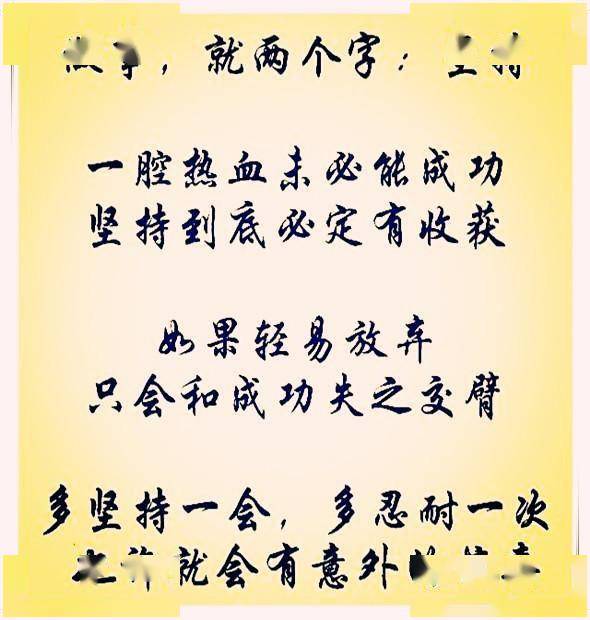 就两个字：
一腔热血未必能成功
坚持到底必定有收获
如果轻易放弃
只会和成功失之交臂
多坚持一会，多忍耐一次
就会有意外